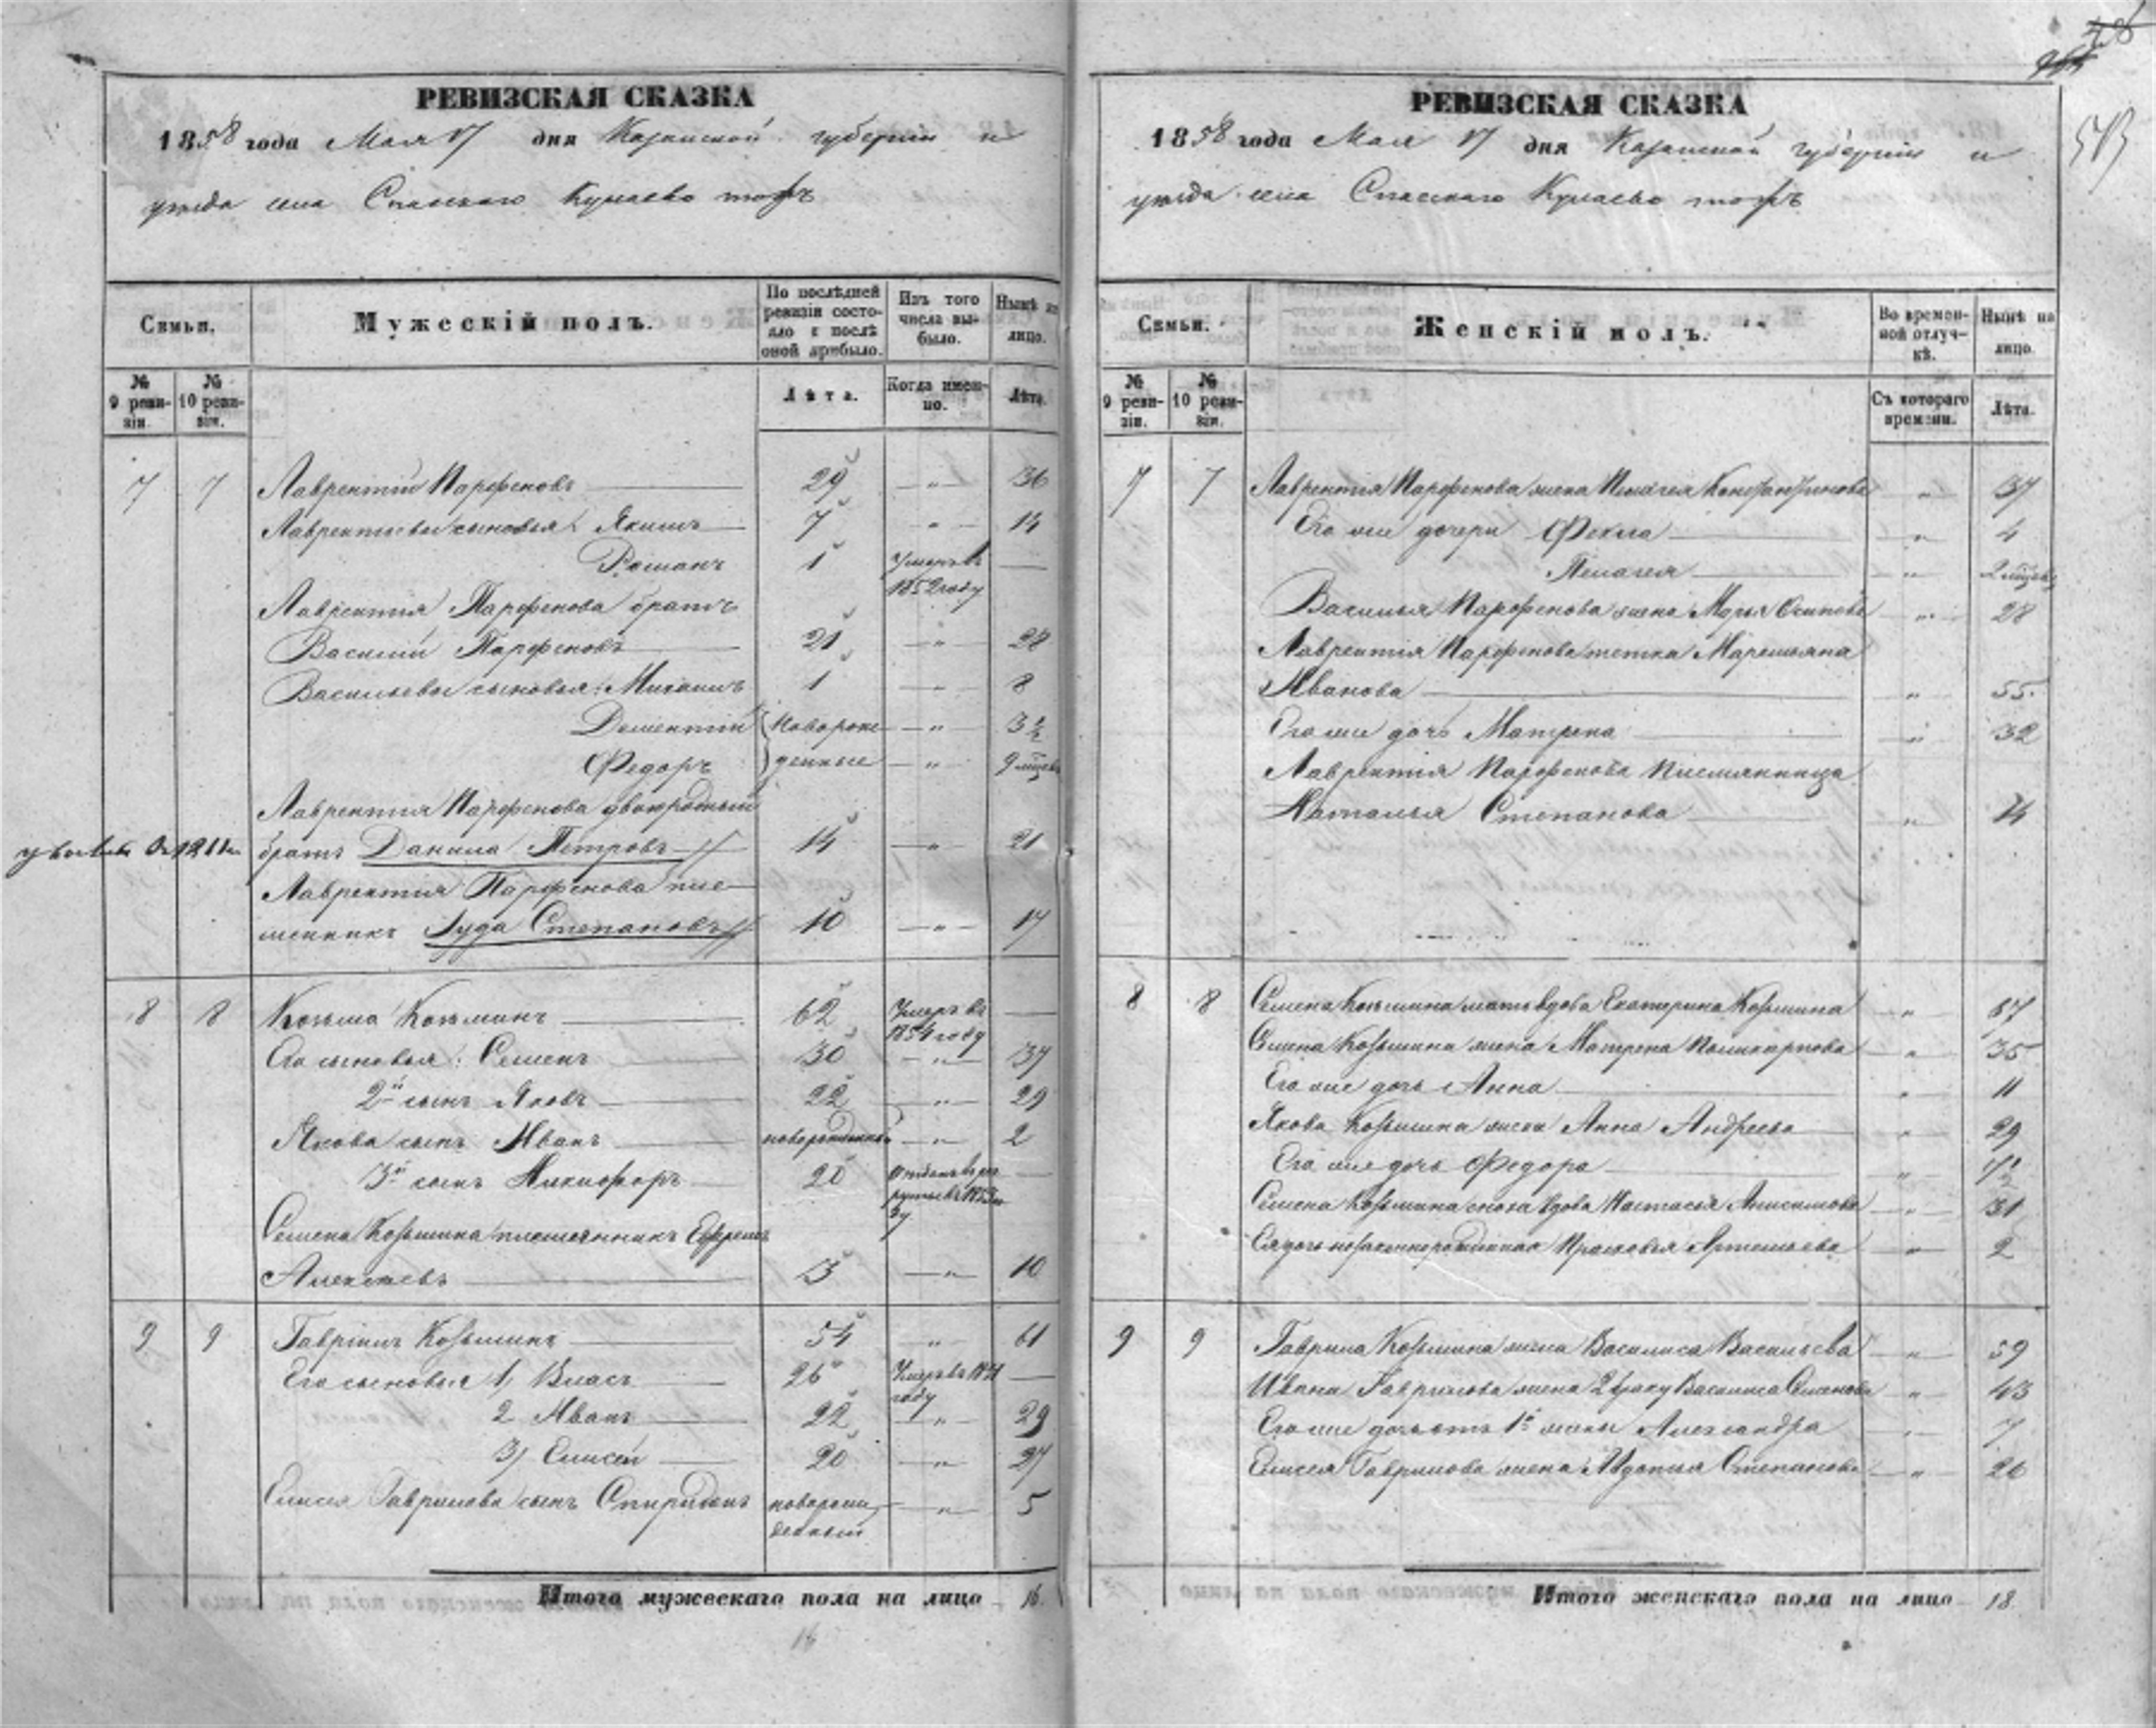 РЕВИЗСКАЯ СКАЗКА
1858 года Мая 17 дня Казанской губернии и
уезда села Спасского Кунаево тожъ
Семьи.
Мужескій полъ.
По послѣдней ревизіи состояло и послѣ оной прибыло.
Изъ того числа выбыло.
Нынѣ на лицо.
№ 9 ревизіи.
№ 10 ревизіи.
Лѣта.
Когда именно.
Лѣта.
7 7 Лаврентій Парфеновъ 29 — „ — 36
Лаврентьевы сыновья: Якимъ 7 „ 14
Романъ 1 Умеръ въ 1852 году —
Лаврентія Парфенова братъ
Василій Парфеновъ 21 — „ — 28
Васильевы сыновья: Михаилъ 1 — „ — 8
Дементій новорож — „ — 3½
Федоръ денные — „ — 9 мѣсяц
Лаврентія Парфенова двоюродный
братъ Данила Петровъ 14 — „ — 21
Лаврентія Парфенова пле
менникъ Іуда Степановъ 10 — „ — 17
8 8 Козьма Козьминъ 62 Умеръ въ 1854 году —
Его сыновья: Семенъ 30 — „ — 37
2й сынъ Яковъ 22 — „ — 29
Якова сынъ Иванъ новорожденный — „ — 2
3й сынъ Никифоръ 20 Отданъ въ рекруты въ 185 —
Семена Козьмина племянникъ Ефремъ
Алексѣевъ 3 — „ — 10
9 9 Гавріилъ Козьминъ 54 „ 61
Его сыновья 1, Власъ 26 Умеръ въ году —
2 Иванъ 22 — „ — 29
3, Елисей 20 — „ — 27
Елисея Гаврилова сынъ Спиридонъ новорожденный — „ — 5
Итого мужескаго пола на лицо 16
16
РЕВИЗСКАЯ СКАЗКА
1858 года Мая 17 дня Казанской губерніи и
уезда села Спасского Кунаево тожъ
Семьи.
Женскій полъ.
Во временной отлучкѣ.
Нынѣ на лицо.
№ 9 ревизіи.
№ 10 ревизіи.
Съ котораго времени.
Лѣта.
7 7 Лаврентія Парфенова жена Пелагея Константинова „ 37
Его же дочери Фекла „ 4
Пелагея „ 2 мѣсяц
Василья Парфенова жена Марья Осипова „ 28
Лаврентія Парфенова тетка Маремьяна
Иванова „ 55
Его же дочь Матрена „ 32
Лаврентія Парфенова племянница
Наталья Степанова „ 14
8 8 Семена Козьмина мать вдова Екатерина Козьмина „ 67
Семена Козьмина жена Матрена Поликарпова „ 35
Его же дочь Анна „ 11
Якова Козьмина жена Анна Андреева „ 29
Его же дочь Федора „ ½
Семена Козьмина сноха вдова Настасья Анисимова „ 31
Ея дочь незаконнорожденная Прасковья Артемьева „ 2
9 9 Гаврила Козьмина жена Василиса Васильева „ 59
Ивана Гаврилова жена 2 браку Василиса Семенова „ 43
Его же дочь отъ 1й жены Александра „ 7
Елисея Гаврилова жена Авдотья Степанова „ 26
Итого женскаго пола на лицо 18